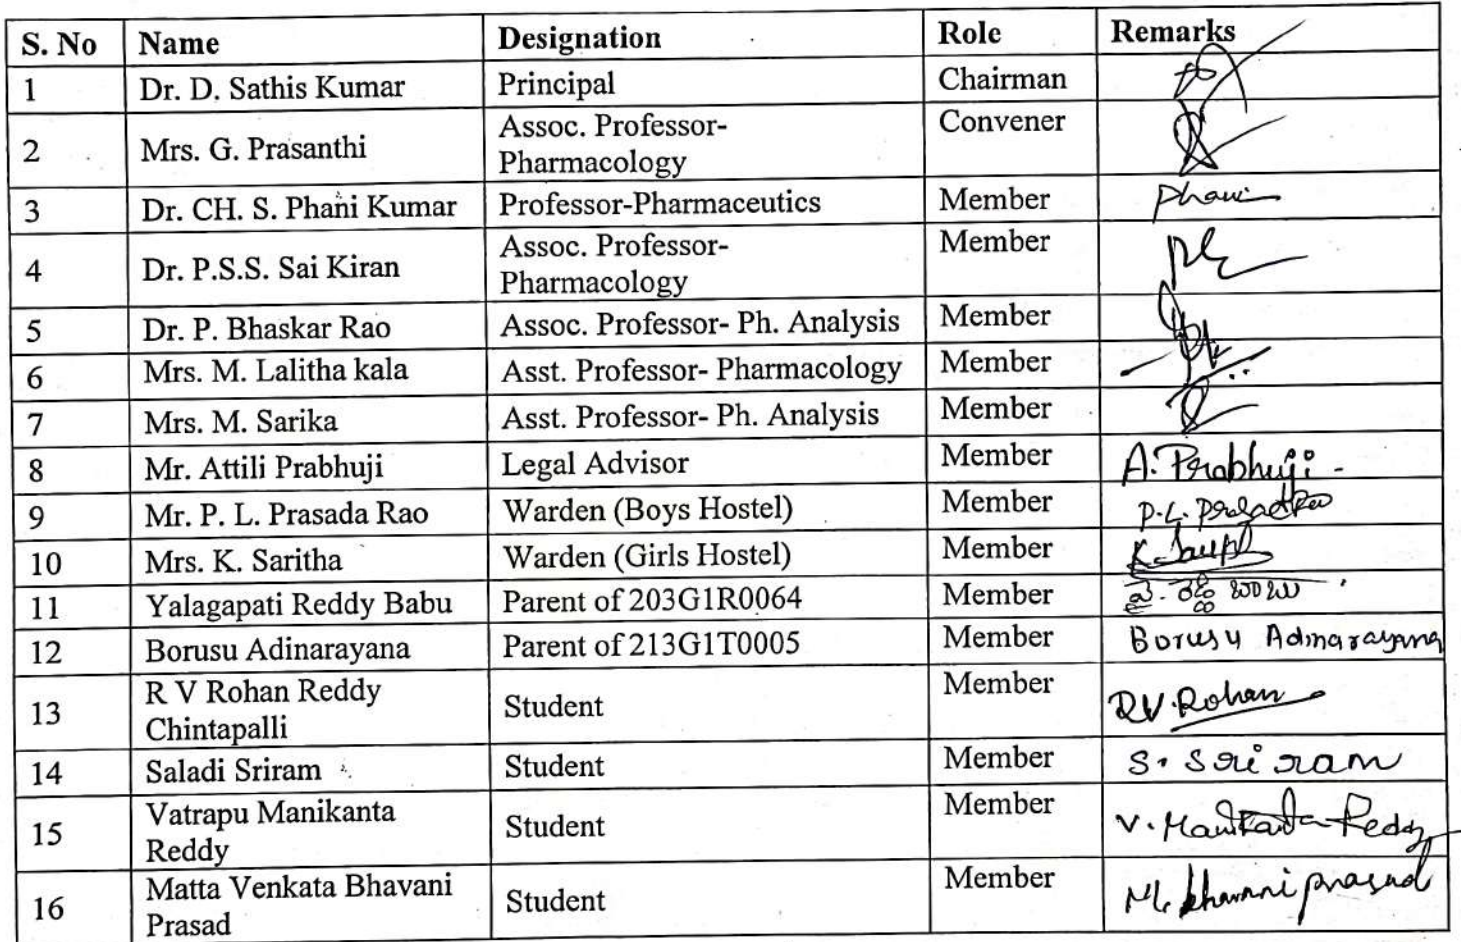 S. No Name Designation Role Remarks
1 Dr. D. Sathis Kumar Principal Chairman
2 Mrs. G. Prasanthi Assoc. Professor- Convener
Pharmacology
3 Dr. CH. S. Phani Kumar Professor-Pharmaceutics Member Phani
4 Dr. P.S.S. Sai Kiran Assoc. Professor- Member
Pharmacology
5 Dr. P. Bhaskar Rao Assoc. Professor- Ph. Analysis Member
6 Mrs. M. Lalitha kala Asst. Professor- Pharmacology Member
7 Mrs. M. Sarika Asst. Professor- Ph. Analysis Member
8 Mr. Attili Prabhuji Legal Advisor Member A. Prabhuji -
9 Mr. P. L. Prasada Rao Warden (Boys Hostel) Member P.L. PrasadaRao
10 Mrs. K. Saritha Warden (Girls Hostel) Member
11 Yalagapati Reddy Babu Parent of 203G1R0064 Member
12 Borusu Adinarayana Parent of 213G1T0005 Member Borusu Adinarayana
13 R V Rohan Reddy Student Member RV.Rohan
Chintapalli
14 Saladi Sriram Student Member S. Sri ram
15 Vatrapu Manikanta Student Member V. Manikanta Reddy
Reddy
16 Matta Venkata Bhavani Student Member M. bhavani prasad
Prasad